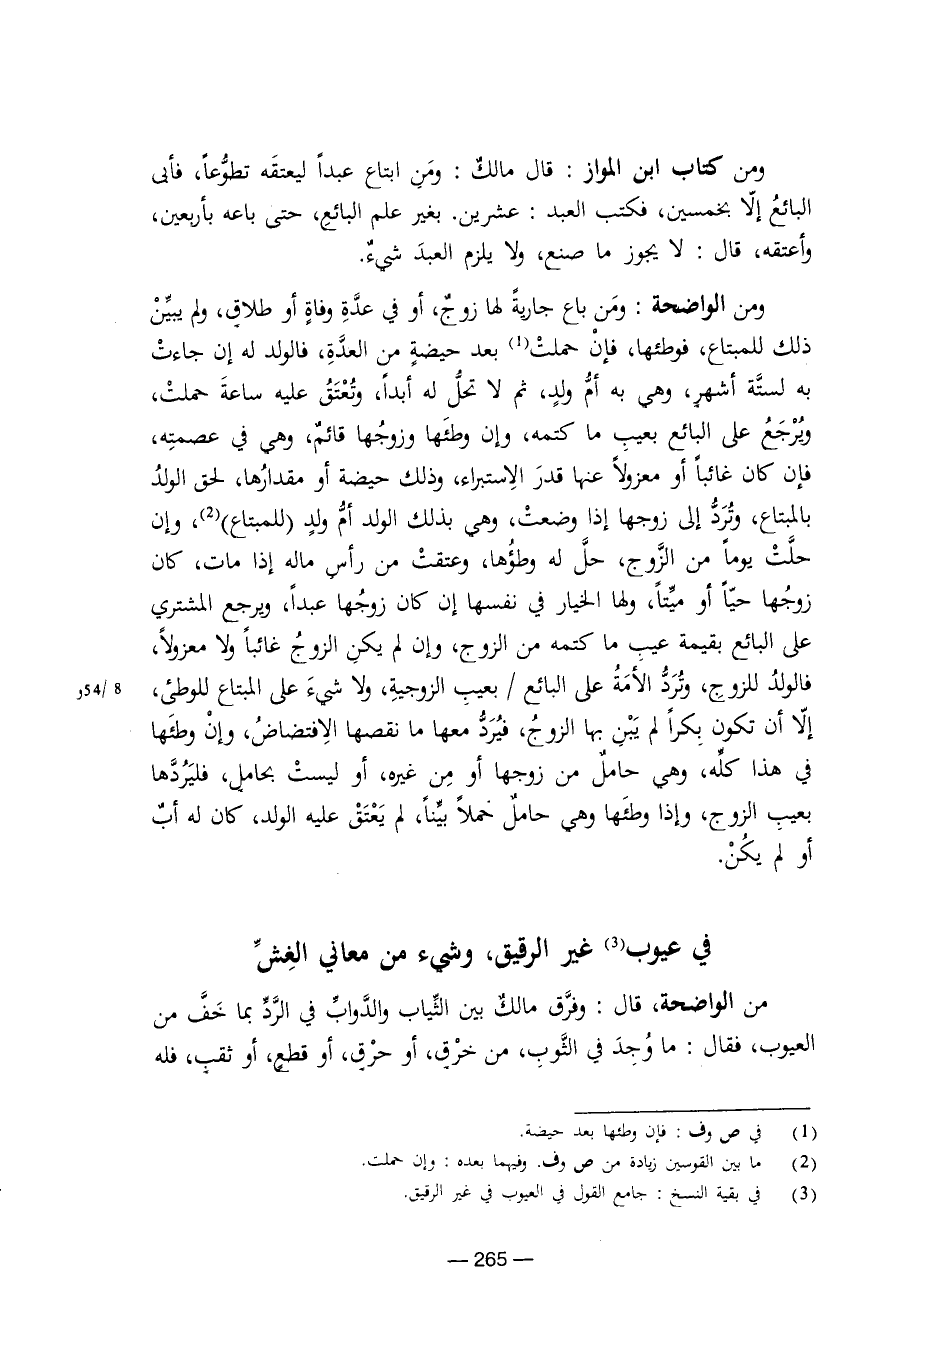 ومن كتاب ابن المواز : قال مالكٌ : ومَنِ ابتاع عبداً ليعتقَه تطوُّعاً، فأبى
البائعُ إلّا بخمسين، فكتب العبد : عشرين. بغير علم البائعِ، حتى باعه بأربعين،
وأعتقه، قال : لا يجوز ما صنع، ولا يلزم العبدَ شيءٌ.
ومن الواضحة : ومَن باع جاريةً لها زوجٌ، أو في عدَّةِ وفاةٍ أو طلاقٍ، ولم يبيِّنْ
ذلك للمبتاع، فوطئها، فإنْ حملتْ(1) بعد حيضةٍ من العدَّةِ، فالولد له إن جاءتْ
به لستَّة أشهرٍ، وهي به أمُّ ولدٍ، ثم لا تحلُّ له أبداً، وتُعْتَقُ عليه ساعةَ حملتْ،
ويُرْجَعُ على البائع بعيبِ ما كتمه، وإن وطئَها وزوجُها قائمٌ، وهي في عصمتِه،
فإن كان غائباً أو معزولاً عنها قدرَ الاِستبراء، وذلك حيضة أو مقدارُها، لحق الولدُ
بالمبتاع، وتُرَدُّ إلى زوجها إذا وضعتْ، وهي بذلك الولد أمُّ ولدٍ (للمبتاع)(2)، وإن
حلَّتْ يوماً من الزَّوج، حلَّ له وطؤُها، وعتقتْ من رأسِ ماله إذا مات، كان
زوجُها حيّاً أو ميِّتاً، ولها الخيار في نفسها إن كان زوجُها عبداً، ويرجع المشتري
على البائع بقيمة عيبِ ما كتمه من الزوج، وإن لم يكنِ الزوجُ غائباً ولا معزولاً،
فالولدُ للزوجِ، وتُرَدُّ الأمَةُ على البائع / بعيبِ الزوجيةِ، ولا شيءَ على المبتاع للوطئ،
8 /54و
إلّا أن تكون بكراً لم يَبْنِ بها الزوجُ، فيُرَدُّ معها ما نقصها الاِفتضاضُ، وإنْ وطئَها
في هذا كلِّه، وهي حاملٌ من زوجها أو مِن غيره، أو ليستْ بحاملٍ، فليَرُدَّها
بعيبِ الزوج، وإذا وطئَها وهي حاملٌ حَملاً بيِّناً، لم يَعْتَقْ عليه الولد، كان له أبٌ
أو لم يكُنْ.
في عيوب(3) غير الرقيق، وشيء من معاني الغِشِّ
من الواضحة، قال : وفرَّق مالكٌ بين الثِّياب والدَّوابِّ في الرَّدِّ بما خَفَّ من
العيوب، فقال : ما وُجِدَ في الثَّوبِ، من خرْقٍ، أو حرْقٍ، أو قطعٍ، أو ثقبٍ، فله
(1) في ص وف : فإن وطئها بعد حيضة.
(2) ما بين القوسين زيادة من ص وف. وفيهما بعده : وإن حملت.
(3) في بقية النسخ : جامع القول في العيوب في غير الرقيق.
— 265 —